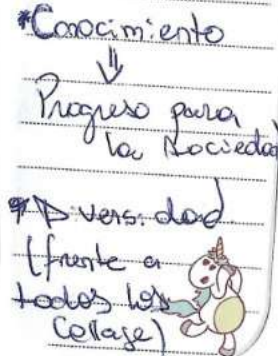 *Conocimiento
⇓
Progreso para
la sociedad
* Diversidad
(frente a
todos los
Collage)